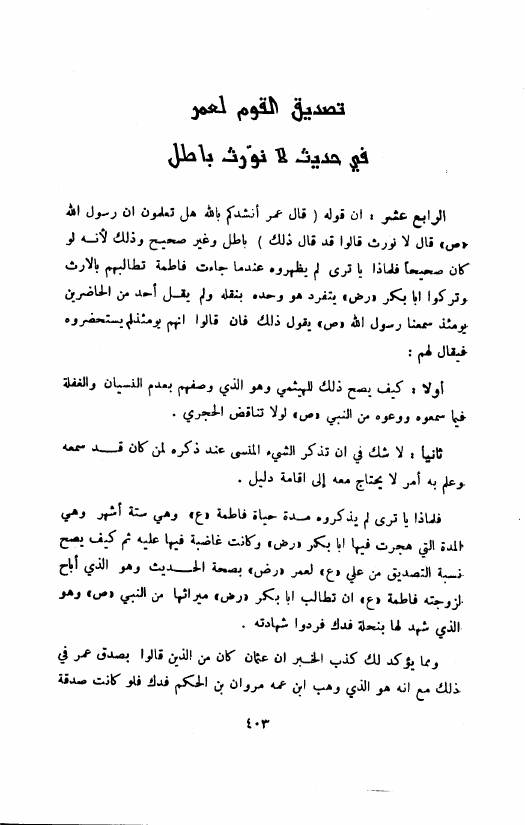 تصديق القوم لعمر
في حديث لا نوّرث باطل
الرابع عشر : ان قوله ( قال عمر أنشدكم بالله هل تعلمون ان رسول الله
«ص» قال لا نورث قالوا قد قال ذلك ) باطل وغير صحيح وذلك لأنه لو
كان صحيحاً فلماذا يا ترى لم يظهروه عندما جاءت فاطمة تطالبهم بالارث
وتركوا ابا بكر «رض» يتفرد هو وحده بنقله ولم يقل أحد من الحاضرين
يومئذ سمعنا رسول الله «ص» يقول ذلك فان قالوا انهم يومئذ لم يستحضروه
فيقال لهم :
أولا : كيف يصح ذلك للهيثمي وهو الذي وصفهم بعدم النسيان والغفلة
فيما سمعوه ووعوه من النبي «ص» لولا تناقض الحجري .
ثانيا : لا شك في ان تذكر الشيء المنسى عند ذكره لمن كان قد سمعه
وعلم به أمر لا يحتاج معه إلى اقامة دليل .
فلماذا يا ترى لم يذكروه مدة حياة فاطمة «ع» وهي ستة أشهر وهي
المدة التي هجرت فيها ابا بكر «رض» وكانت غاضبة فيها عليه ثم كيف يصح
نسبة التصديق من علي «ع» لعمر «رض» بصحة الحديث وهو الذي أباح
لزوجته فاطمة «ع» ان تطالب ابا بكر «رض» ميراثها من النبي «ص» وهو
الذي شهد لها بنحلة فدك فردوا شهادته .
ومما يؤكد لك كذب الخبر ان عثمان كان من الذين قالوا بصدق عمر في
ذلك مع انه هو الذي وهب ابن عمه مروان بن الحكم فدك فلو كانت صدقة
٤٠٣